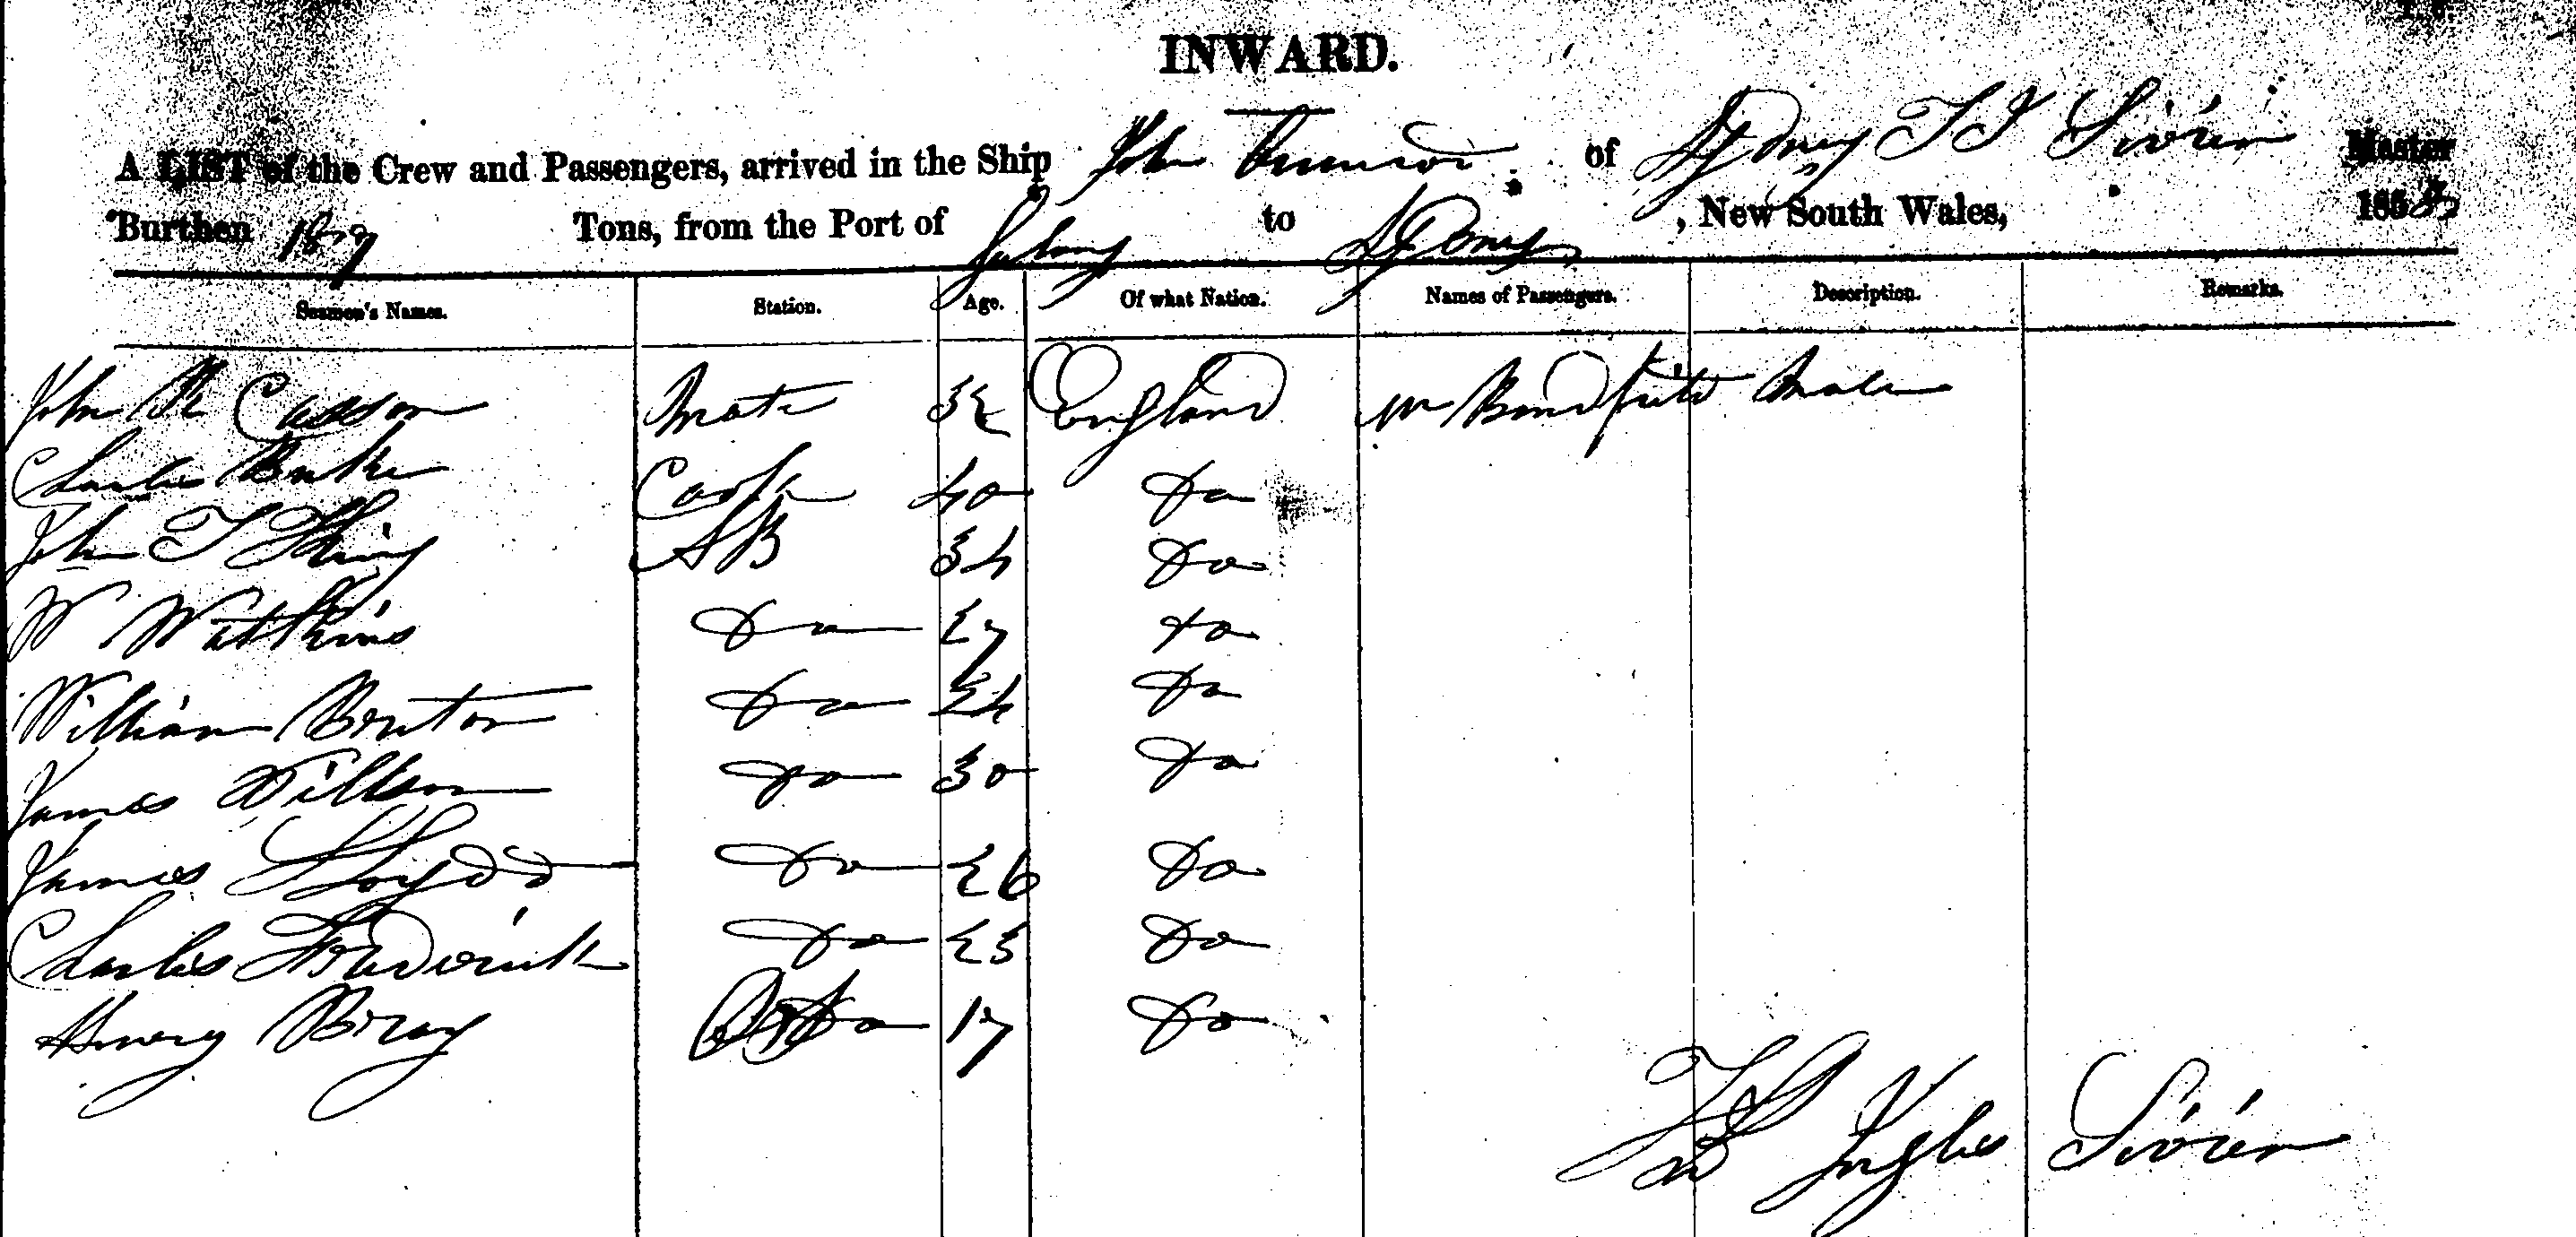 INWARD.
A LIST of the Crew and Passengers, arrived in the Ship John of Sydney Master
Burthen Tons, from the Port of to Sydney, New South Wales, 185
Seamen's Names. Station. Age. Of what Nation. Names of Passengers. Description. Remarks.
John Casson Mate 32 England Mr Bondfield Male
Charles Cook 40 Do
John T AB 34 Do
W Watkins Do 27 Do
William Do 24 Do
James Willson Do 30 Do
James Lloydd Do 26 Do
Charles Frederick Do 23 Do
Henry Bray 17 Do
Inglis